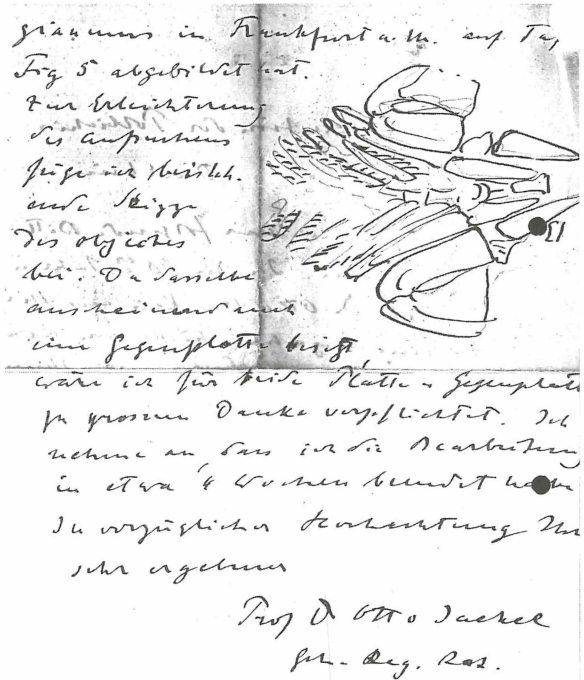 gianums in Frankfurt a. M. auf Ta,
Fig 5 abgebildet hat.
Zur Erleichterung
des Aufsuchens
füge ich beisteh.
ende Skizze
des Objectes
bei. Da dasselbe
anscheinend auch
eine Gegenplatte besitzt,
wäre ich für beide Platte u Gegenplatte
zu grossem Danke verpflichtet. Ich
nehme an, dass ich die Bearbeitung
in etwa 4 Wochen beendet habe
In vorzüglicher Hochachtung Ihr
sehr ergebener
Prof Dr Otto Jaekel
Geh. Reg. Rat.